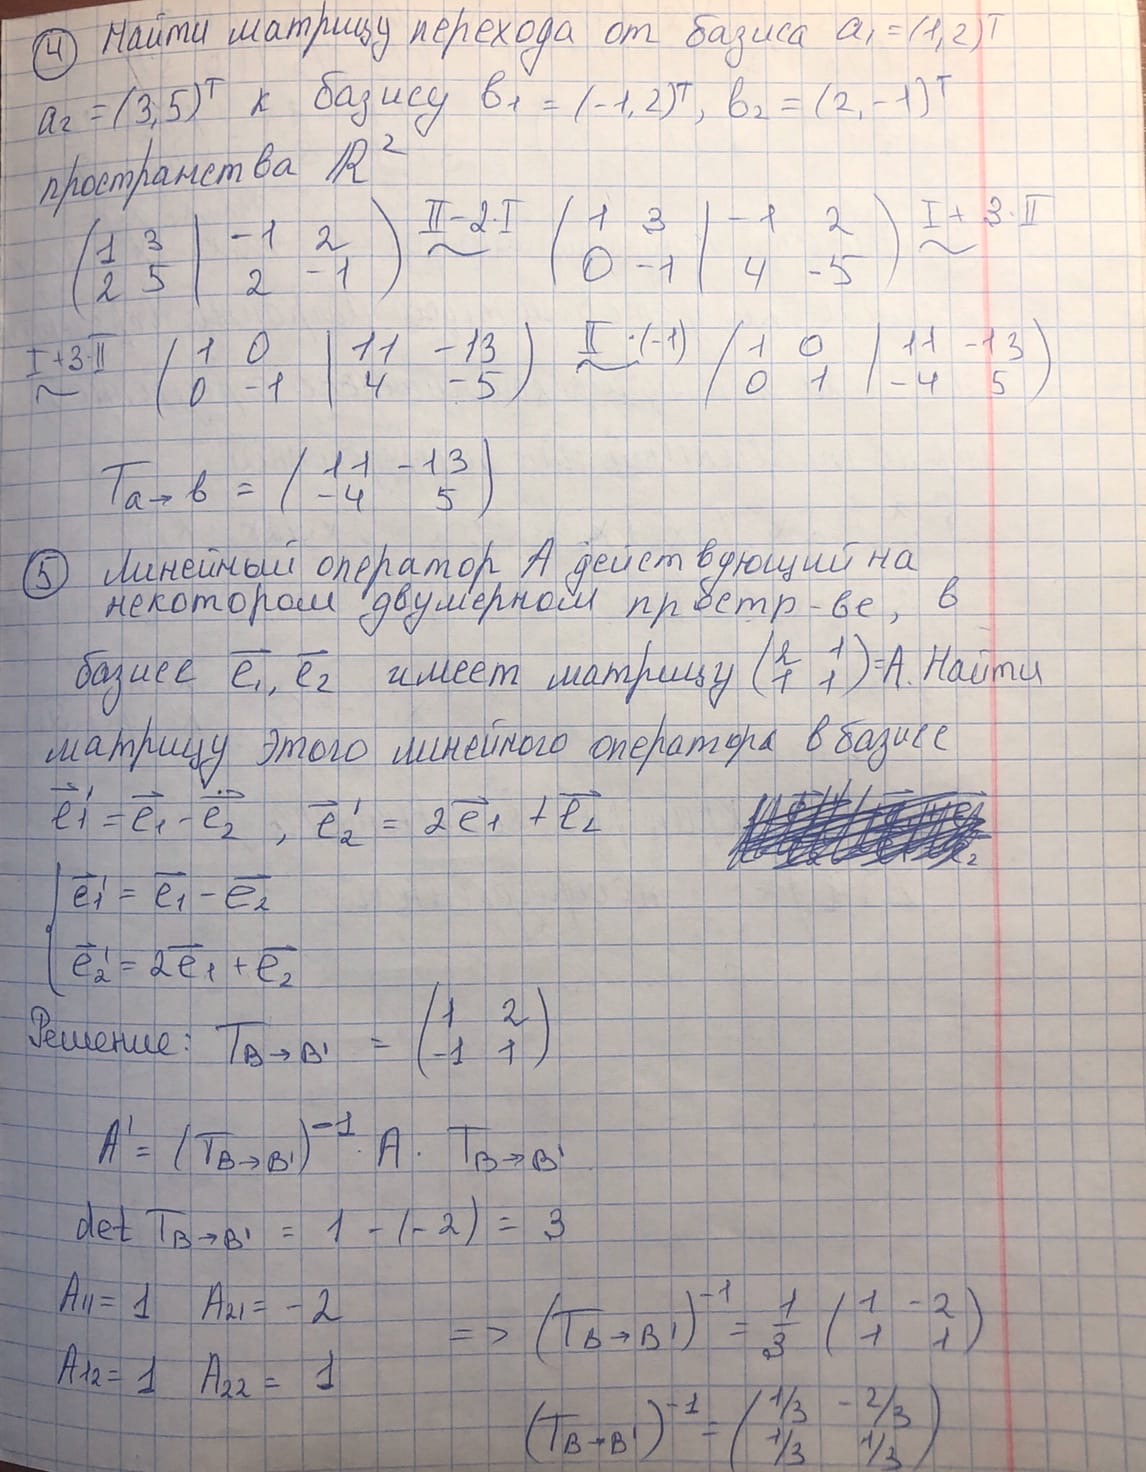 ④ Найти матрицу перехода от базиса a₁ = (1,2)ᵀ
a₂ = (3,5)ᵀ к базису b₁ = (-1,2)ᵀ, b₂ = (2,-1)ᵀ
пространства ℝ²
(1 3 | -1 2; 2 5 | 2 -1) II-2·I ~ (1 3 | -1 2; 0 -1 | 4 -5) I+3·II ~
I+3·II ~ (1 0 | 11 -13; 0 -1 | 4 -5) II·(-1) ~ (1 0 | 11 -13; 0 1 | -4 5)
T a→b = (11 -13; -4 5)
⑤ Линейный оператор A действующий на
некотором двумерном простр-ве, в
базисе e₁, e₂ имеет матрицу (2 1; 1 1)=A. Найти
матрицу этого линейного оператора в базисе
e₁' = e₁ - e₂, e₂' = 2e₁ + e₂
e₁' = e₁ - e₂
e₂' = 2e₁ + e₂
Решение: T B→B' = (1 2; -1 1)
A' = (T B→B')⁻¹ · A · T B→B'
det T B→B' = 1 - (-2) = 3
A₁₁ = 1 A₂₁ = -2
=> (T B→B')⁻¹ = 1/3 (1 -2; 1 1)
A₁₂ = 1 A₂₂ = 1
(T B→B')⁻¹ = (1/3 -2/3; 1/3 1/3)